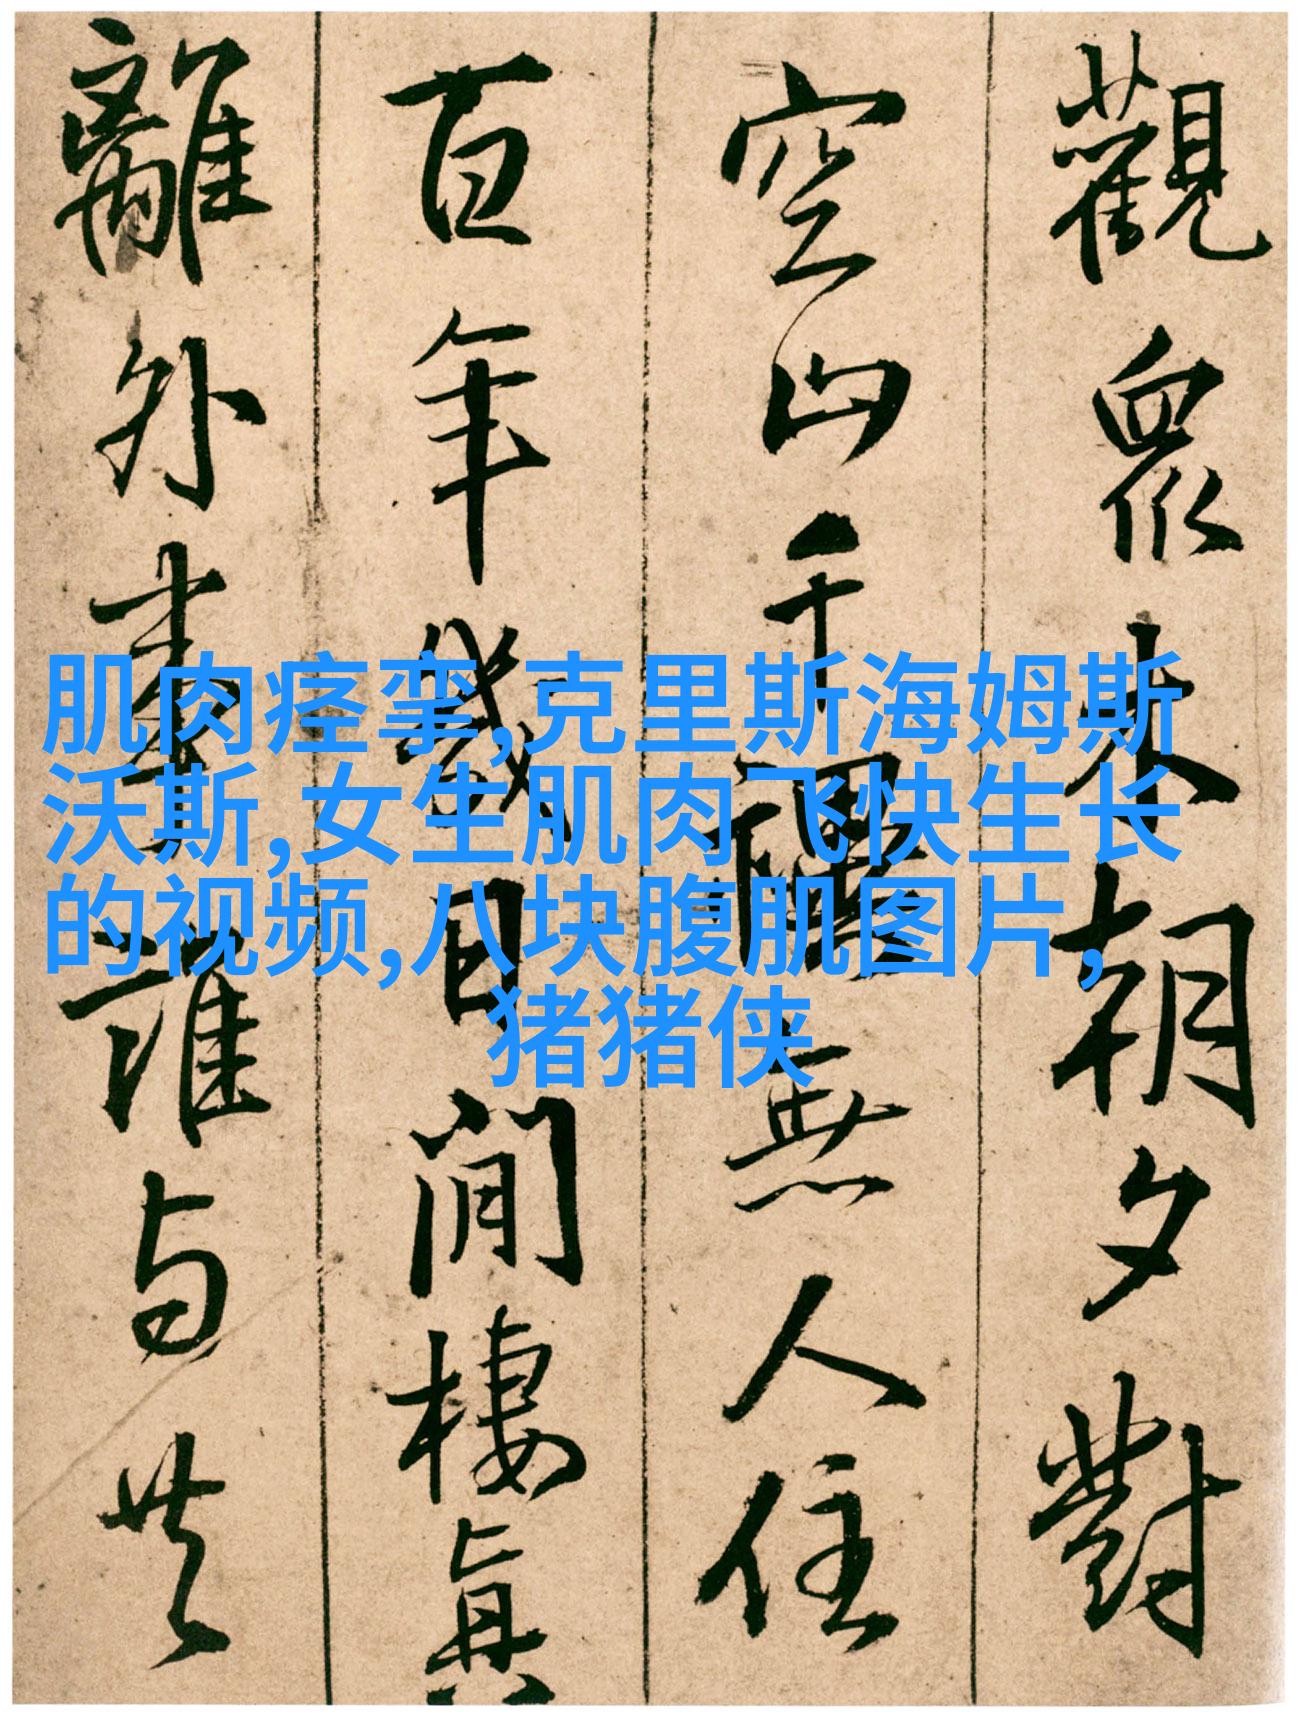 觀眾未朝夕對
空山千無人住
百年幾日閒棲真
離外事誰与共
肌肉痉挛,克里斯海姆斯
沃斯,女生肌肉飞快生长
的视频,八块腹肌图片,
猪猪侠